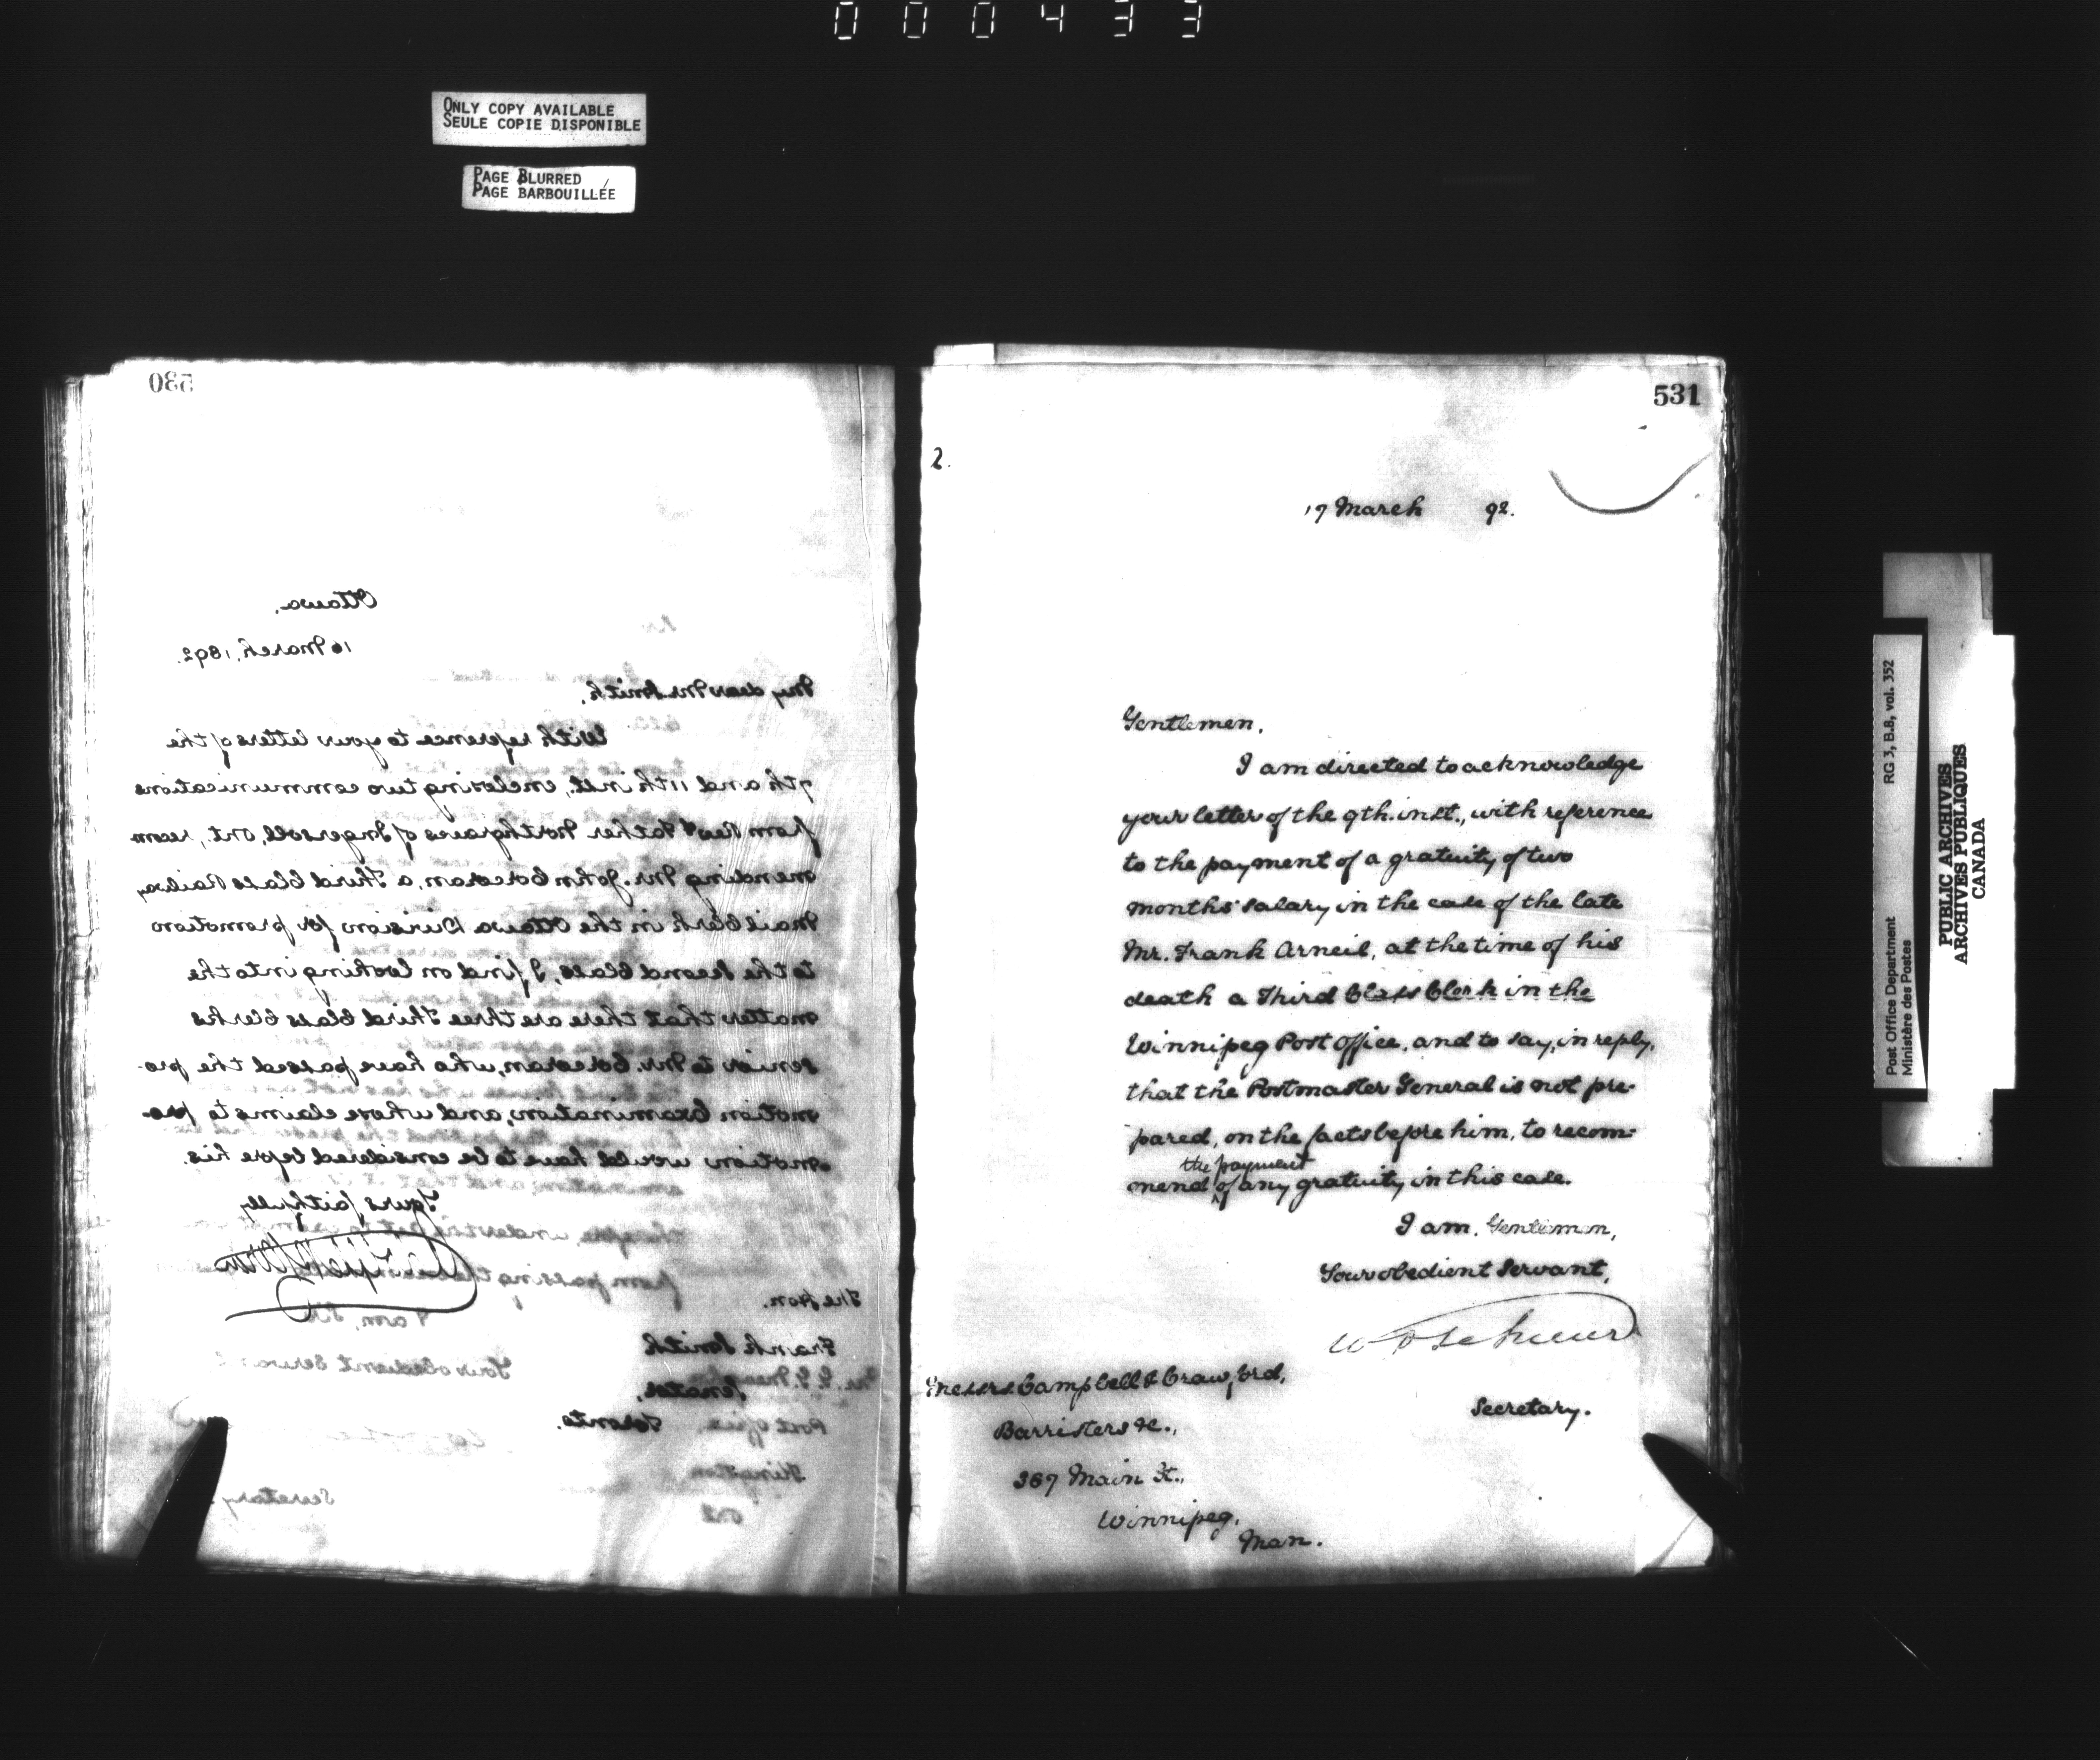 000433
ONLY COPY AVAILABLE
SEULE COPIE DISPONIBLE
PAGE BLURRED
PAGE BARBOUILLÉE
530
Ottawa,
16 March, 1892.
My dear Mr. Smith,
With reference to your letters of the
9th and 11th inst., enclosing two communications
from Revd Father Northgraves of Ingersoll, Ont., recom
mending Mr. John Corcoran, a Third Class Railway
Mail Clerk in the Ottawa Division for promotion
to the Second Class, I find on looking into the
matter that there are three Third Class Clerks
senior to Mr. Corcoran, who have passed the pro-
motion Examination, and whose claims to pro-
motion would have to be considered before his.
Yours faithfully
The Hon.
Frank Smith
Senator,
Toronto.
I am, Sir
Your obedient Servant
Post Office
Kingston
Ont
Secretary.
531
2.
17 March 92.
Gentlemen,
I am directed to acknowledge
your letter of the 9th. inst., with reference
to the payment of a gratuity of two
months' salary in the case of the late
Mr. Frank Arneil, at the time of his
death a Third Class Clerk in the
Winnipeg Post Office, and to say, in reply,
that the Postmaster General is not pre-
pared, on the facts before him, to recom-
mend the payment of any gratuity in this case.
I am, Gentlemen,
Your obedient Servant,
Secretary.
Messrs. Campbell & Crawford,
Barristers &c.,
367 Main St.,
Winnipeg,
Man.
Post Office Department RG 3, B.8, vol. 352
Ministère des Postes
PUBLIC ARCHIVES
ARCHIVES PUBLIQUES
CANADA